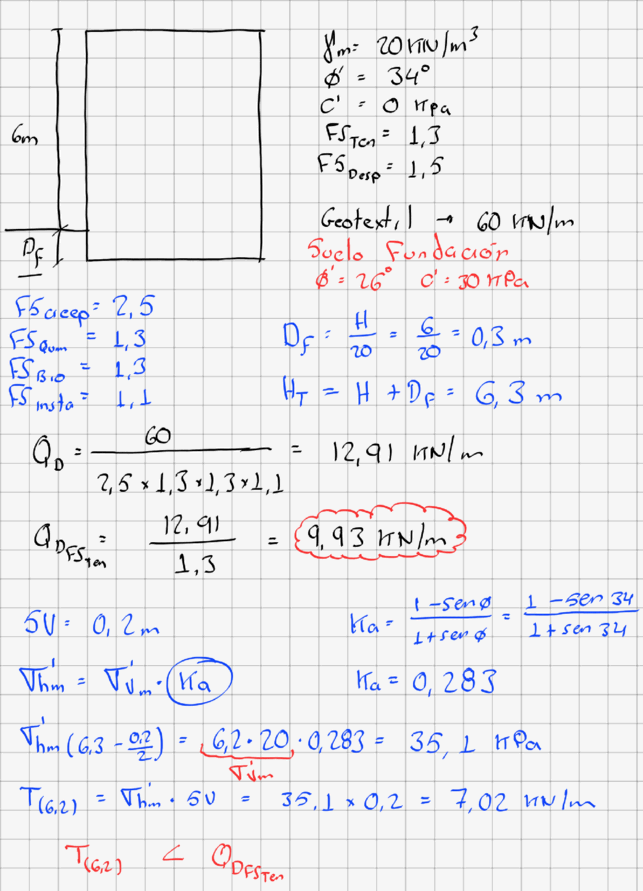 γm = 20 KN/m³
ϕ' = 34°
C' = 0 KPa
FS Ten = 1,3
6m
FS Desp = 1,5
Geotextil → 60 KN/m
DF
Suelo Fundación
ϕ' = 26° C' = 30 KPa
FS creep = 2,5
FS Quim = 1,3
FS Bio = 1,3
FS Insta = 1,1
DF = H/20 = 6/20 = 0,3 m
HT = H + DF = 6,3 m
QD = 60 / 2,5 × 1,3 × 1,3 × 1,1 = 12,91 KN/m
QDFSTen = 12,91 / 1,3 = 9,93 KN/m
SV = 0,2 m
Ka = 1 - sen ϕ / 1 + sen ϕ = 1 - sen 34 / 1 + sen 34
σ'hm = σ'vm · Ka
Ka = 0,283
σ'hm (6,3 - 0,2/2) = 6,2 · 20 · 0,283 = 35,1 KPa
σ'vm
T(6,2) = σ'hm · SV = 35,1 × 0,2 = 7,02 KN/m
T(6,2) < QDFSTen